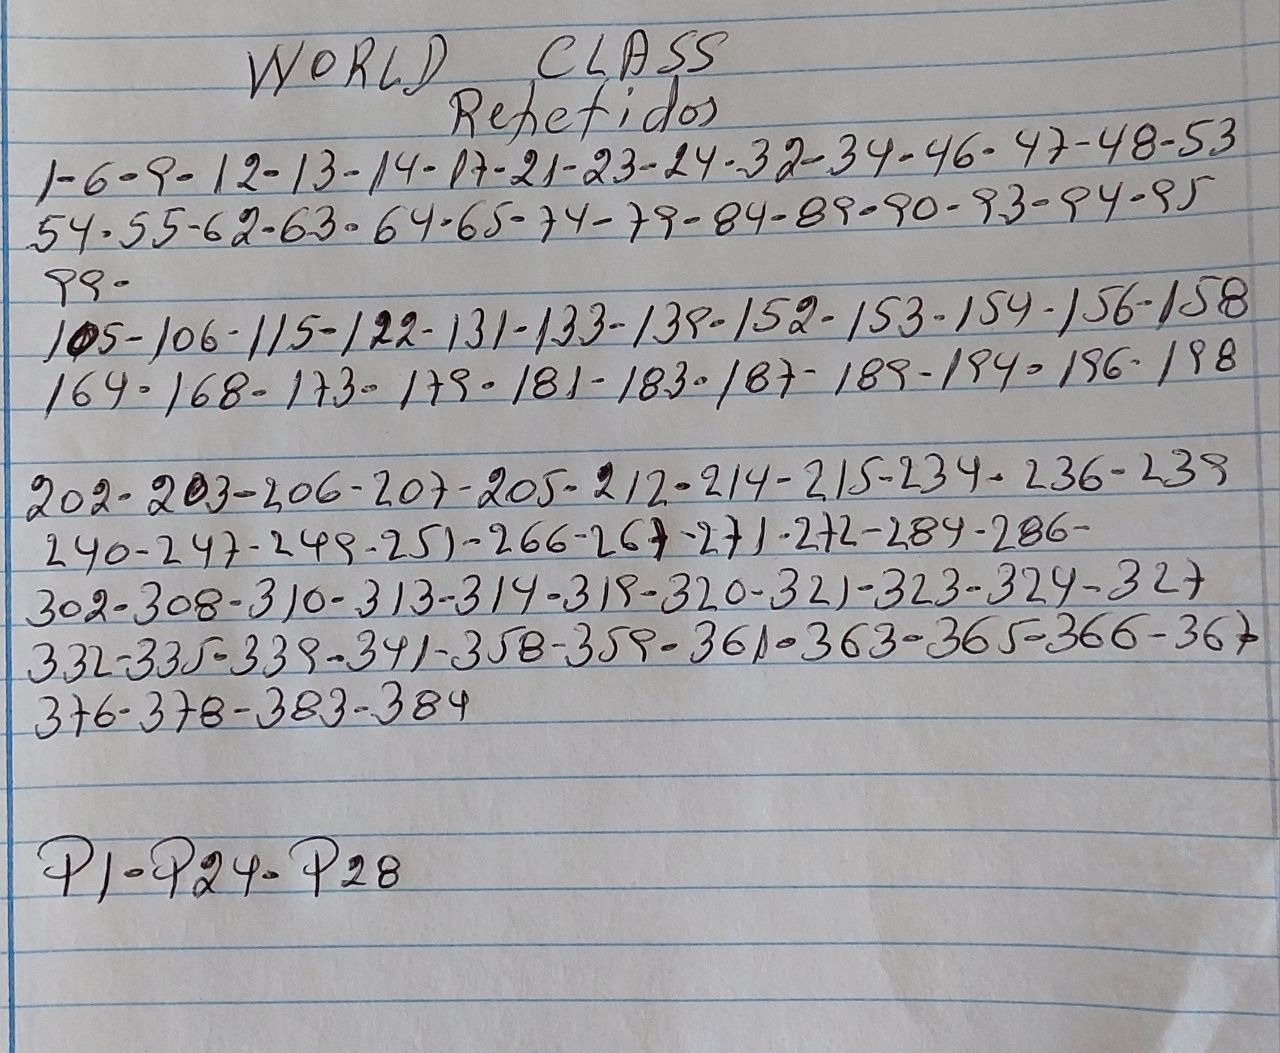 WORLD CLASS
Repetidos
1-6-9-12-13-14-17-21-23-24-32-34-46-47-48-53
54-55-62-63-64-65-74-79-84-89-90-93-94-95
99-
105-106-115-122-131-133-139-152-153-154-156-158
164-168-173-179-181-183-187-189-194-196-198
202-203-206-207-205-212-214-215-234-236-239
240-247-249-251-266-267-271-272-284-286-
302-308-310-313-314-319-320-321-323-324-327
332-335-339-341-358-359-361-363-365-366-367
376-378-383-384
P1-P24-P28